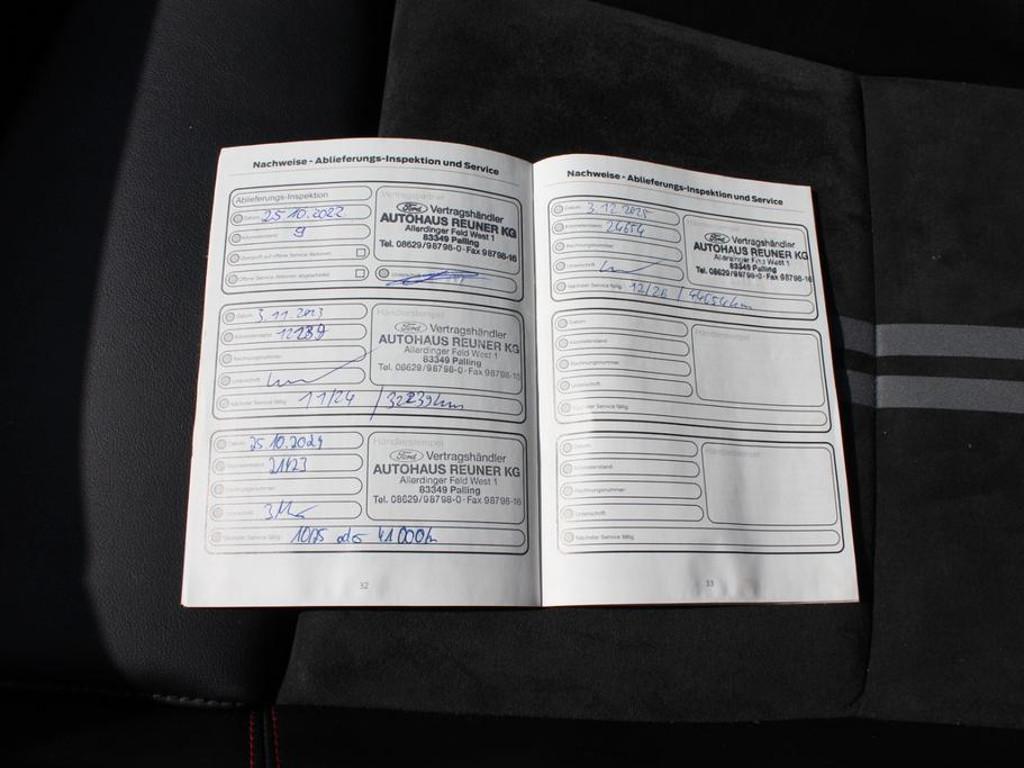 Nachweise - Ablieferungs-Inspektion und Service
Ablieferungs-Inspektion
Datum 25.10.2022
Kilometerstand 9
Ford Vertragshändler
AUTOHAUS REUNER KG
Allerdinger Feld West 1
83349 Palling
Tel. 08629/98798-0 · Fax 98798-16
Datum 3.11.2023
Kilometerstand
Rechnungsnummer
Unterschrift
Nächster Service fällig 11/24 / 32239km
Händlerstempel
Ford Vertragshändler
AUTOHAUS REUNER KG
Allerdinger Feld West 1
83349 Palling
Tel. 08629/98798-0 · Fax 98798-16
Datum 25.10.2024
Kilometerstand 21423
Rechnungsnummer
Unterschrift
Nächster Service fällig 10/25 oder 41000km
Händlerstempel
Ford Vertragshändler
AUTOHAUS REUNER KG
Allerdinger Feld West 1
83349 Palling
Tel. 08629/98798-0 · Fax 98798-16
32
Nachweise - Ablieferungs-Inspektion und Service
Datum 3.12.2025
Kilometerstand 24654
Rechnungsnummer
Unterschrift
Nächster Service fällig 12/26 / 44654km
Ford Vertragshändler
AUTOHAUS REUNER KG
Allerdinger Feld West 1
83349 Palling
Tel. 08629/98798-0 · Fax 98798-16
Datum
Kilometerstand
Rechnungsnummer
Unterschrift
Nächster Service fällig
Händlerstempel
Datum
Kilometerstand
Rechnungsnummer
Unterschrift
Nächster Service fällig
Händlerstempel
33